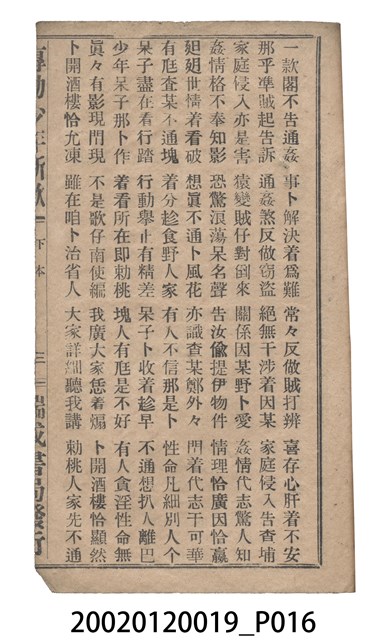 一款閣不告通姦 事卜解決着為難 常々反做賊打辨 喜存心肝着不安
那乎準賊起告訴 通姦煞反做竊盜 絕無干涉着因某 家庭侵入告查埔
家庭侵入亦是害 猿變賊仔對倒來 關係因某野卜愛 姦情代志驚人知
姦情格不奉知影 恐驚浪蕩呆名聲 告汝偸提伊物件 情理恰廣因恰贏
𪜶世情着看破 想眞不通卜風花 亦識查某鄭外々 鬥着代志干可華
有尫查某不通塊 着分趁食野人家 有人不信那是卜 性命凡細別人个
呆子盡在看行踏 行動舉止有精差 呆子卜收着趁早 不通想扒人離巴
少年呆子那卜作 着看所在即勅桃 塊人有尫是不好 有人貪淫性命無
眞々有影現門現 不是歌仔南使編 我廣大家恁着煽 卜開酒樓恰顯然
卜開酒樓恰允凍 雖在咱卜治省人 大家詳細聽我講 勅桃人家先不通
專勸少年新歌 下本 三 瑞成書局發行
20020120019_P016